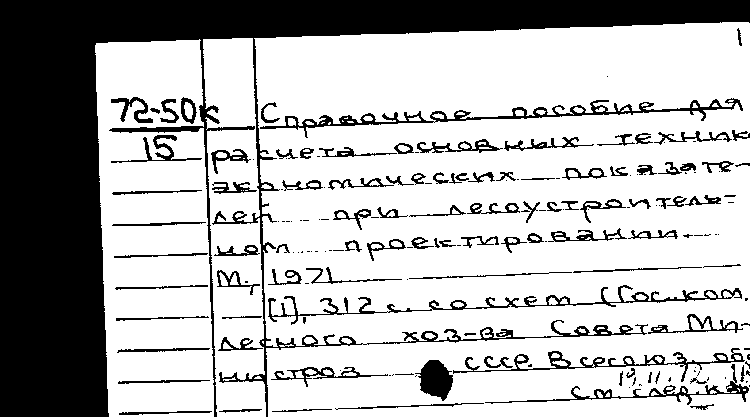 1
72-50к Справочное пособие для
15 расчета основных технико
экономических показате-
лей при лесоустроитель-
ном проектировании.
М., 1971
[1], 312 с. со схем (Гос. ком.
лесного хоз-ва Совета Ми-
нистров СССР. Всесоюз. об
19.11.72
см. след. кар